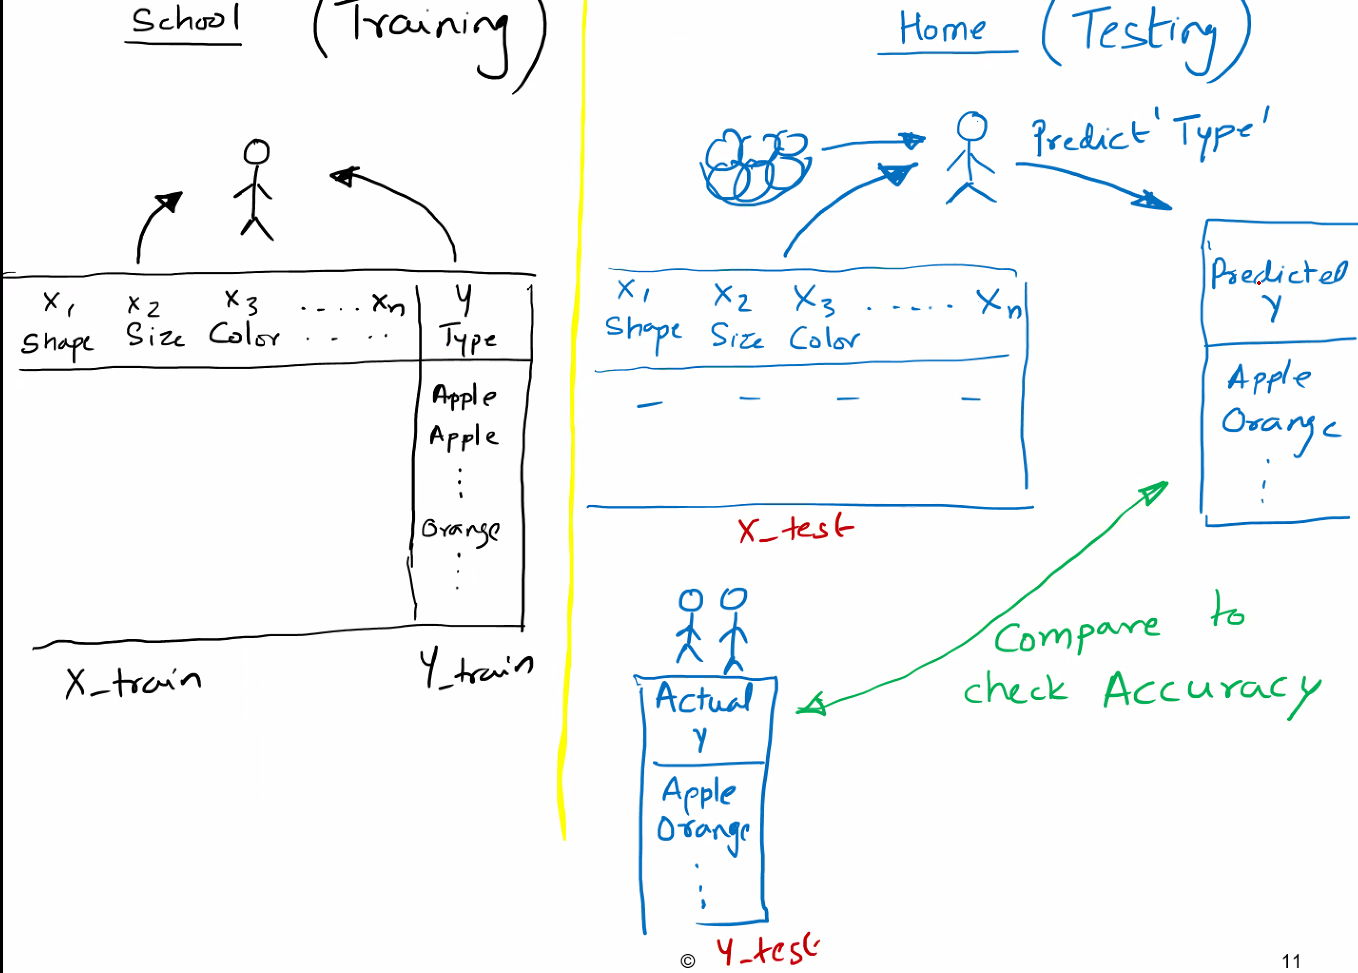 School (Training)
x1 x2 x3 ..... xn y
Shape Size Color ..... Type
Apple
Apple
Orange
X_train Y_train
Home (Testing)
Predict 'Type'
x1 x2 x3 ...... xn
Shape Size Color
X_test
Predicted
y
Apple
Orange
Compare to
check Accuracy
Actual
y
Apple
Orange
Y_test
©
11